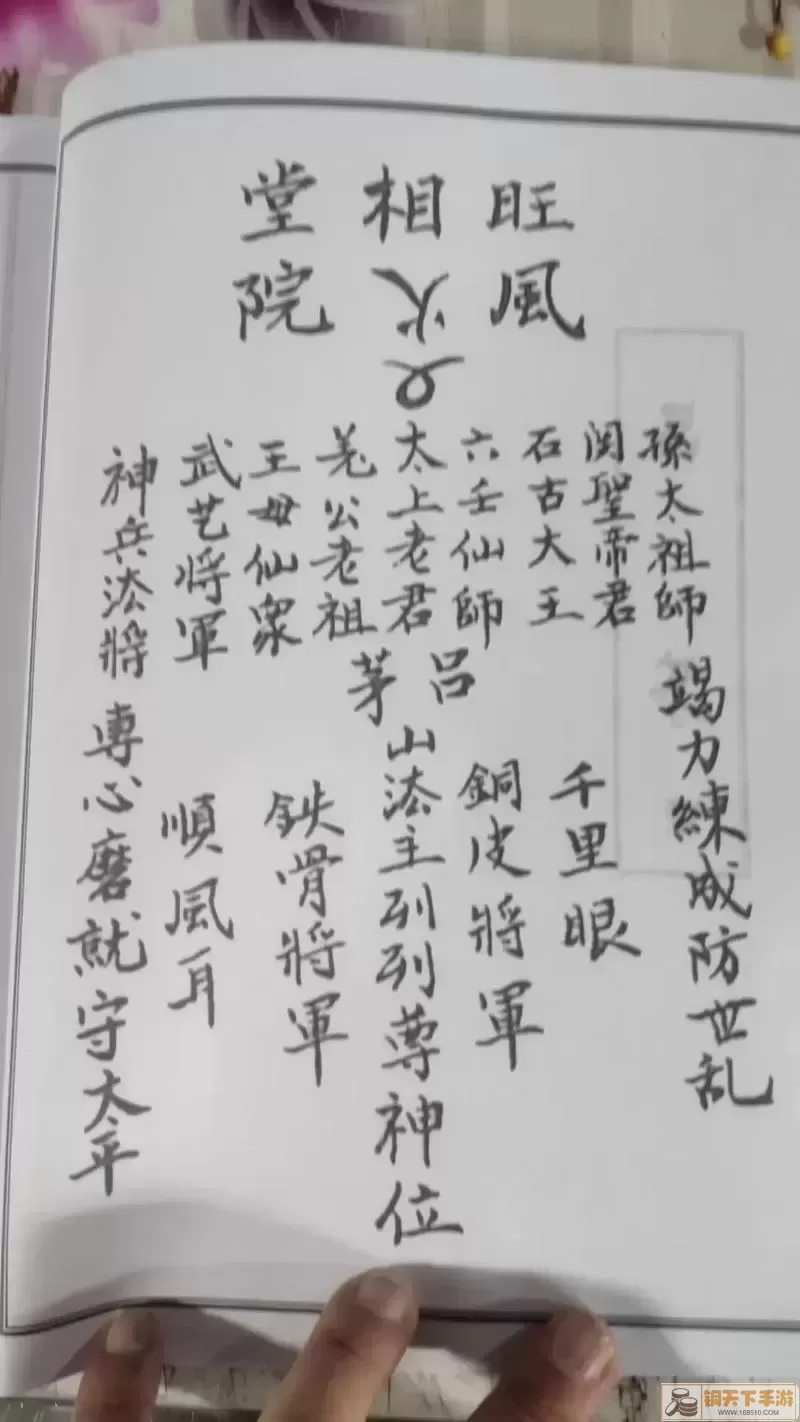 旺相堂
風火院
孫太祖師
関聖帝君
石古大王
六壬仙師
太上老君
羌公老祖
王母仙衆
武艺將軍
神兵法將
呂
茅
山法主列列尊神位
千里眼
銅皮將軍
鉄骨將軍
順風耳
竭力練成防世乱
専心磨就守太平
铜天下手游
WWW.168510.COM